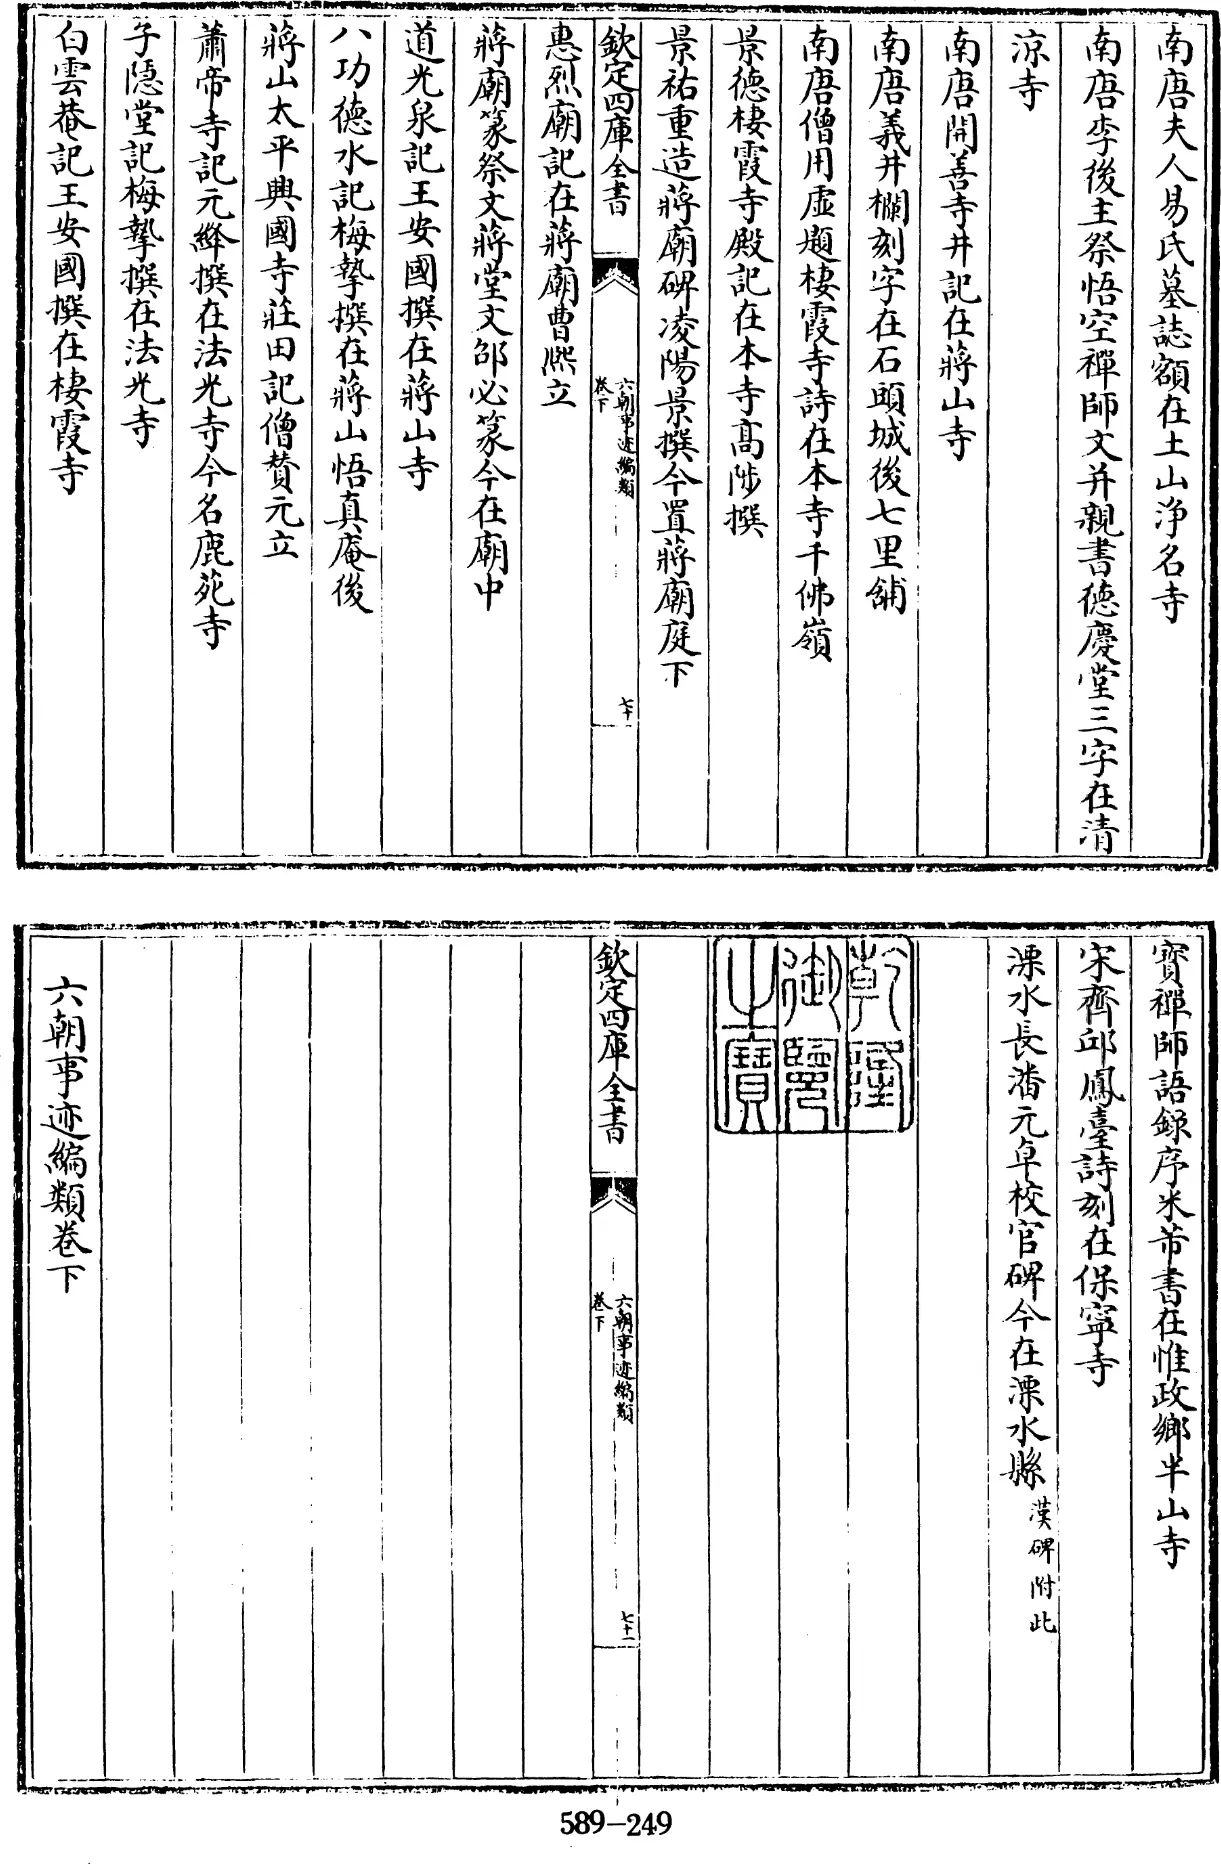 南唐夫人易氏墓誌額在土山淨名寺
南唐李後主祭悟空禪師文并親書德慶堂三字在清
涼寺
南唐開善寺井記在蔣山寺
南唐義井欄刻字在石頭城後七里舖
南唐僧用虛題棲霞寺詩在本寺千佛嶺
景德棲霞寺殿記在本寺高陟撰
景祐重造蔣廟碑凌陽景撰今置蔣廟庭下
欽定四庫全書
六朝事迹編類
卷下
七十
惠烈廟記在蔣廟曹熙立
蔣廟篆祭文蔣堂文邵必篆今在廟中
道光泉記王安國撰在蔣山寺
八功德水記梅摯撰在蔣山悟真庵後
蔣山太平興國寺莊田記僧贊元立
蕭帝寺記元絳撰在法光寺今名鹿苑寺
子隱堂記梅摯撰在法光寺
白雲菴記王安國撰在棲霞寺
寳禪師語録序米芾書在惟政鄉半山寺
宋齊邱鳳臺詩刻在保寧寺
溧水長潘元卓校官碑今在溧水縣 漢碑附此
乾隆
御覽
之寶
欽定四庫全書
六朝事迹編類
卷下
七十一
六朝事迹編類卷下
589-249